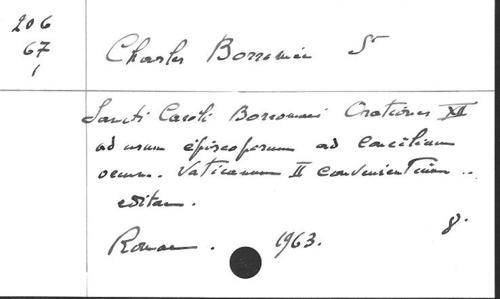 206
67
1
Charles Borromée St
Sancti Caroli Borromaei Orationes XII
ad usum episcoporum ad concilium
oecum. Vaticanum II convenientium ..
editae.
Romae. 1963. 8.